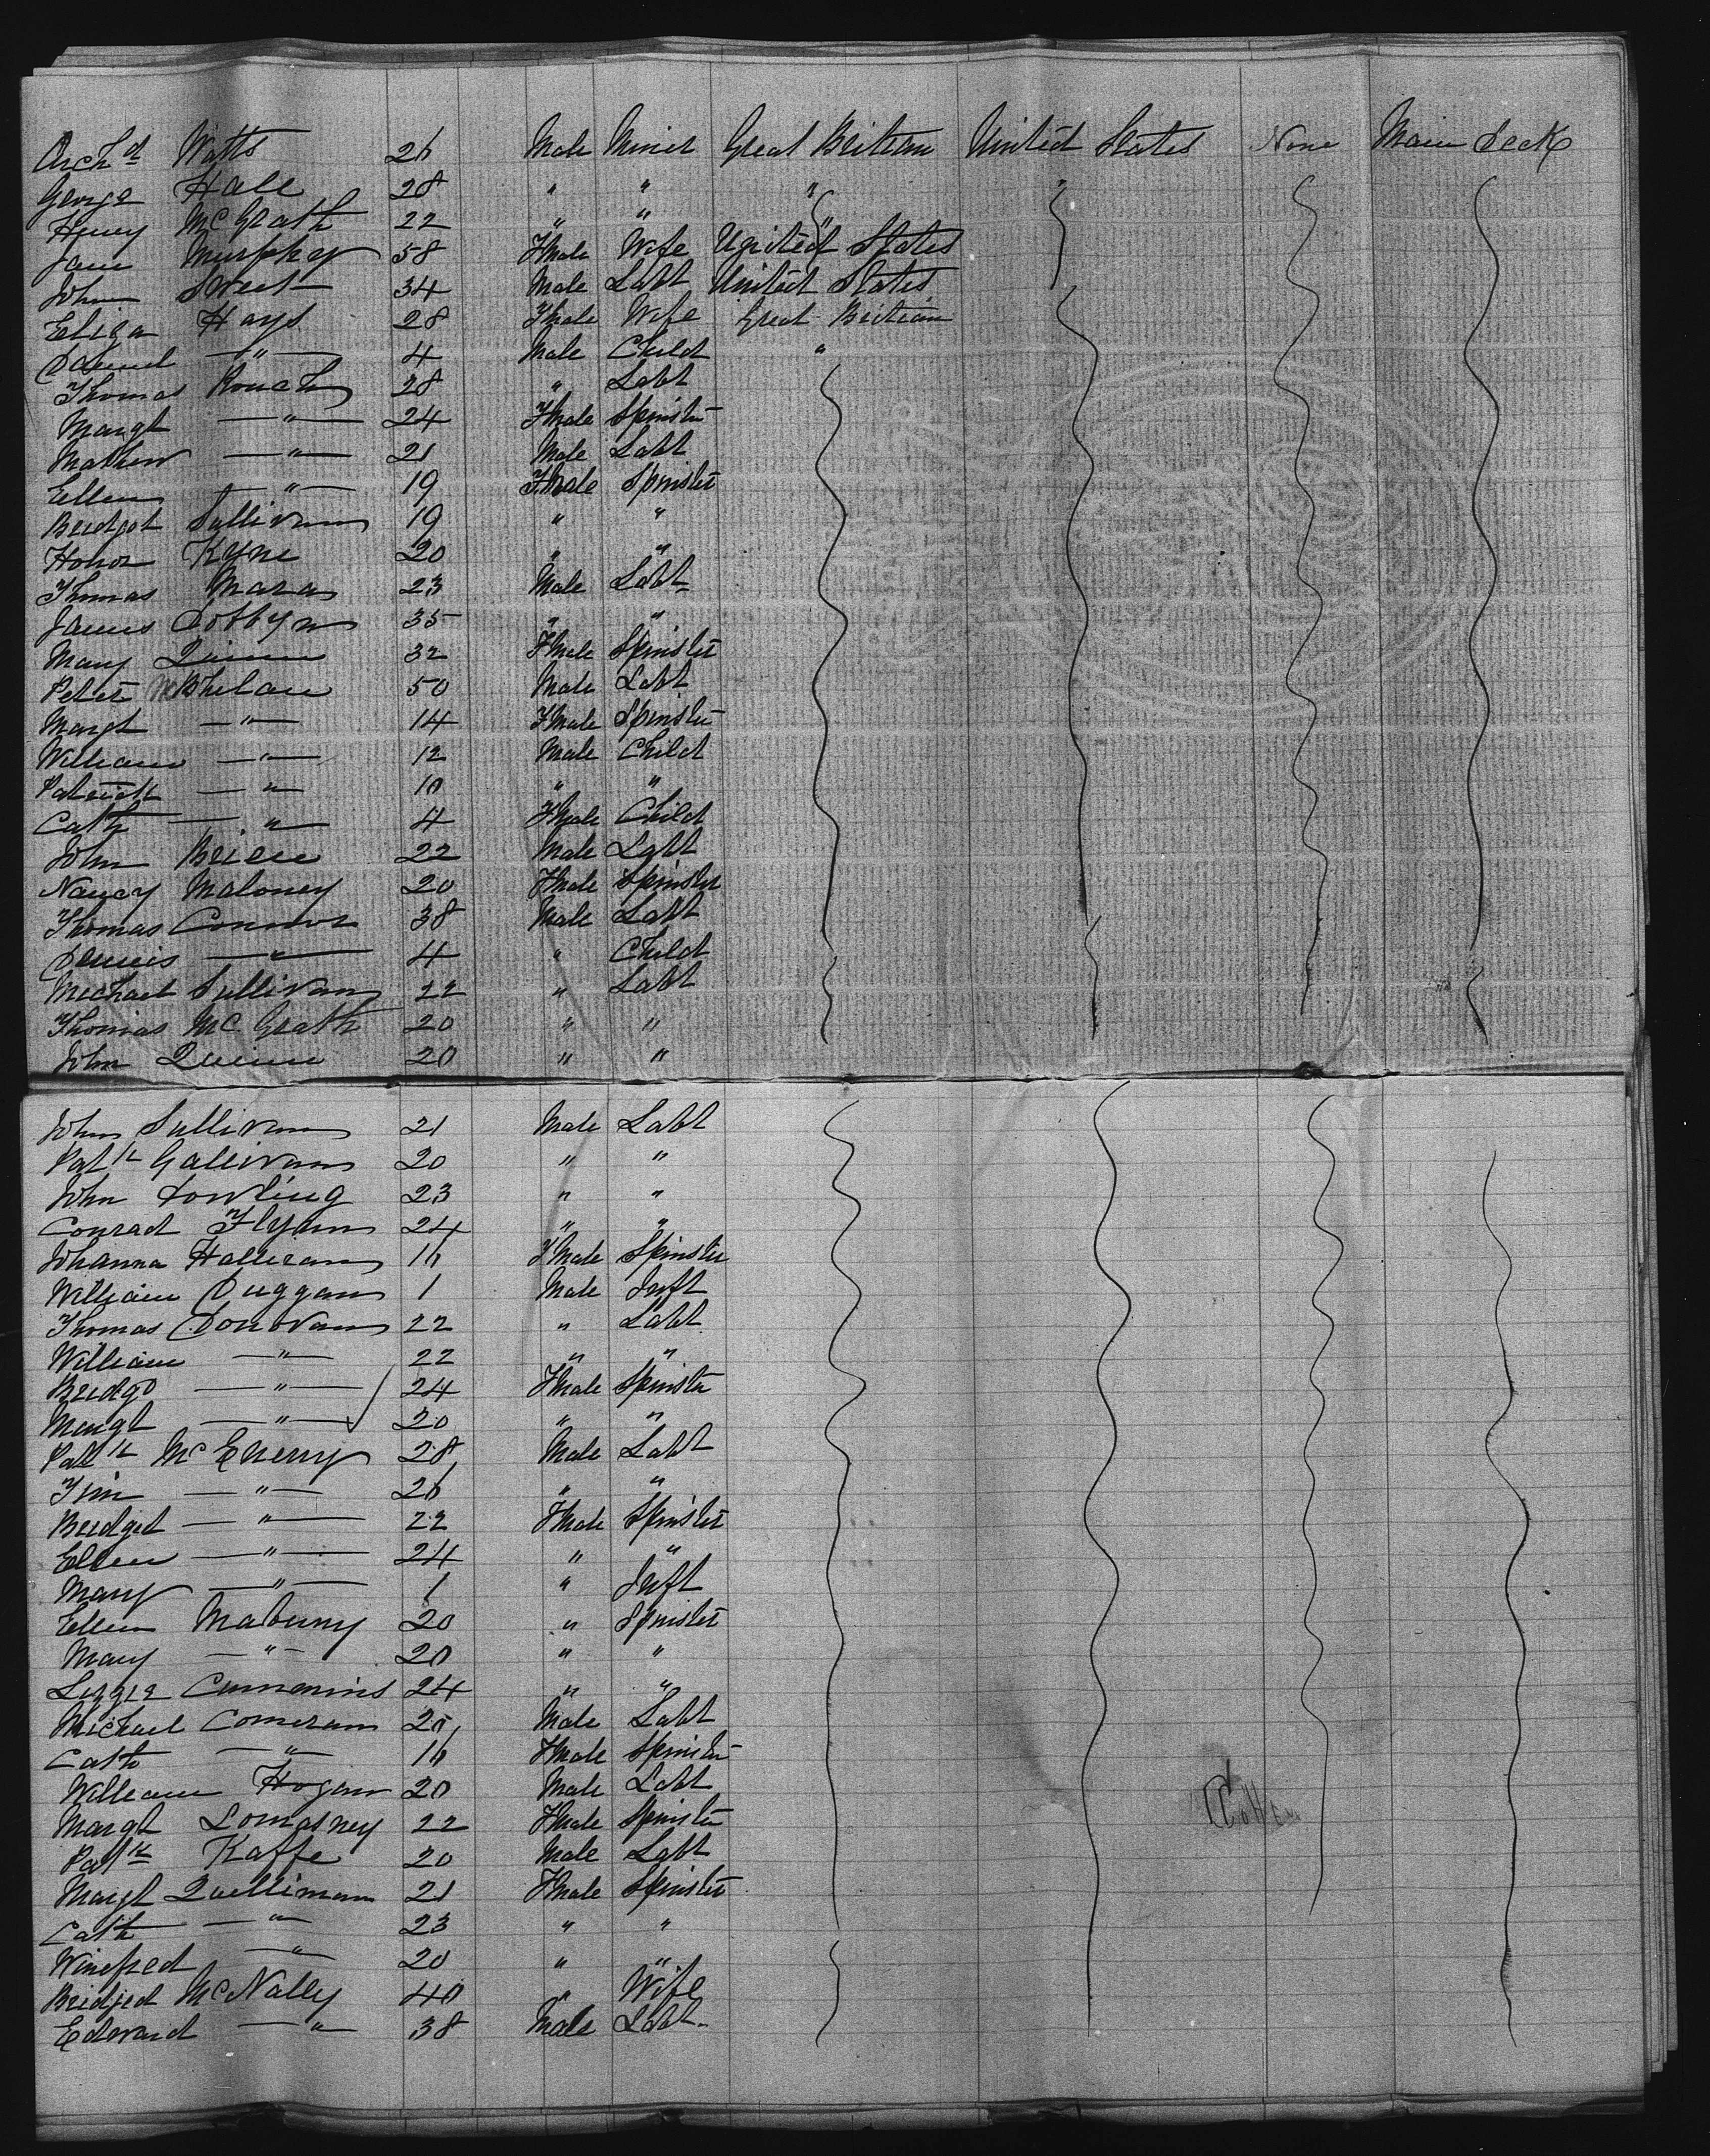 Archd Watts 26 Male Miner Great Britian United States None Main Deck
George Hale 28 " " " "
Henry McGrath 22 " " "
Jane Murphy 58 Fmale Wife United States
John Street 34 Male Labt United States
Eliza Hays 28 Fmale Wife Great Britian
Daniel —"— 4 Male Child "
Thomas Roach 28 " Labt
Margt —"— 24 Fmale Spinster
Mathew —"— 21 Male Labt
Ellen —"— 19 Fmale Spinster
Bridget Sullivan 19 " "
Honor Kyne 20 " "
Thomas Mara 23 Male Labt
James Dobbyn 35 " "
Mary Quinn 32 Fmale Spinster
Peter Whelan 50 Male Labt
Margt —"— 14 Fmale Spinster
William —"— 12 Male Child
Patrick —"— 10 " "
Cath —"— 4 Fmale Child
John Brien 22 Male Labt
Nancy Maloney 20 Fmale Spinster
Thomas Connor 38 Male Labt
Dennis —"— 4 " Child
Michael Sullivan 22 " Labt
Thomas McGrath 20 " "
John Quinn 20 " "
John Sullivan 21 Male Labt
Patk Gallivan 20 " "
John Dowling 23 " "
Conrad Flynn 24 " "
Johanna Halleran 16 Fmale Spinster
William Duggan 1 Male Inft
Thomas Donovan 22 " Labt
William —"— 22 " "
Bridgt —"— 24 Fmale Spinster
Margt —"— 20 " "
Patk McEnerny 28 Male Labt
Tim —"— 26 " "
Bridget —"— 22 Fmale Spinster
Ellen —"— 24 " "
Mary —"— 1 " Inft
Ellen 20 " Spinster
Mary —"— 20 " "
Lizzie Cummins 24 " "
Michael Comeran 25 Male Labt
Cath —"— 16 Fmale Spinster
William Hogan 20 Male Labt
Margt Lomasney 22 Fmale Spinster
Patk Kaffe 20 Male Labt
Margt Quillinan 21 Fmale Spinster
Cath —"— 23 " "
Winefred —"— 20 " "
Bridjed McNally 40 " Wife
Edward —"— 38 Male Labt